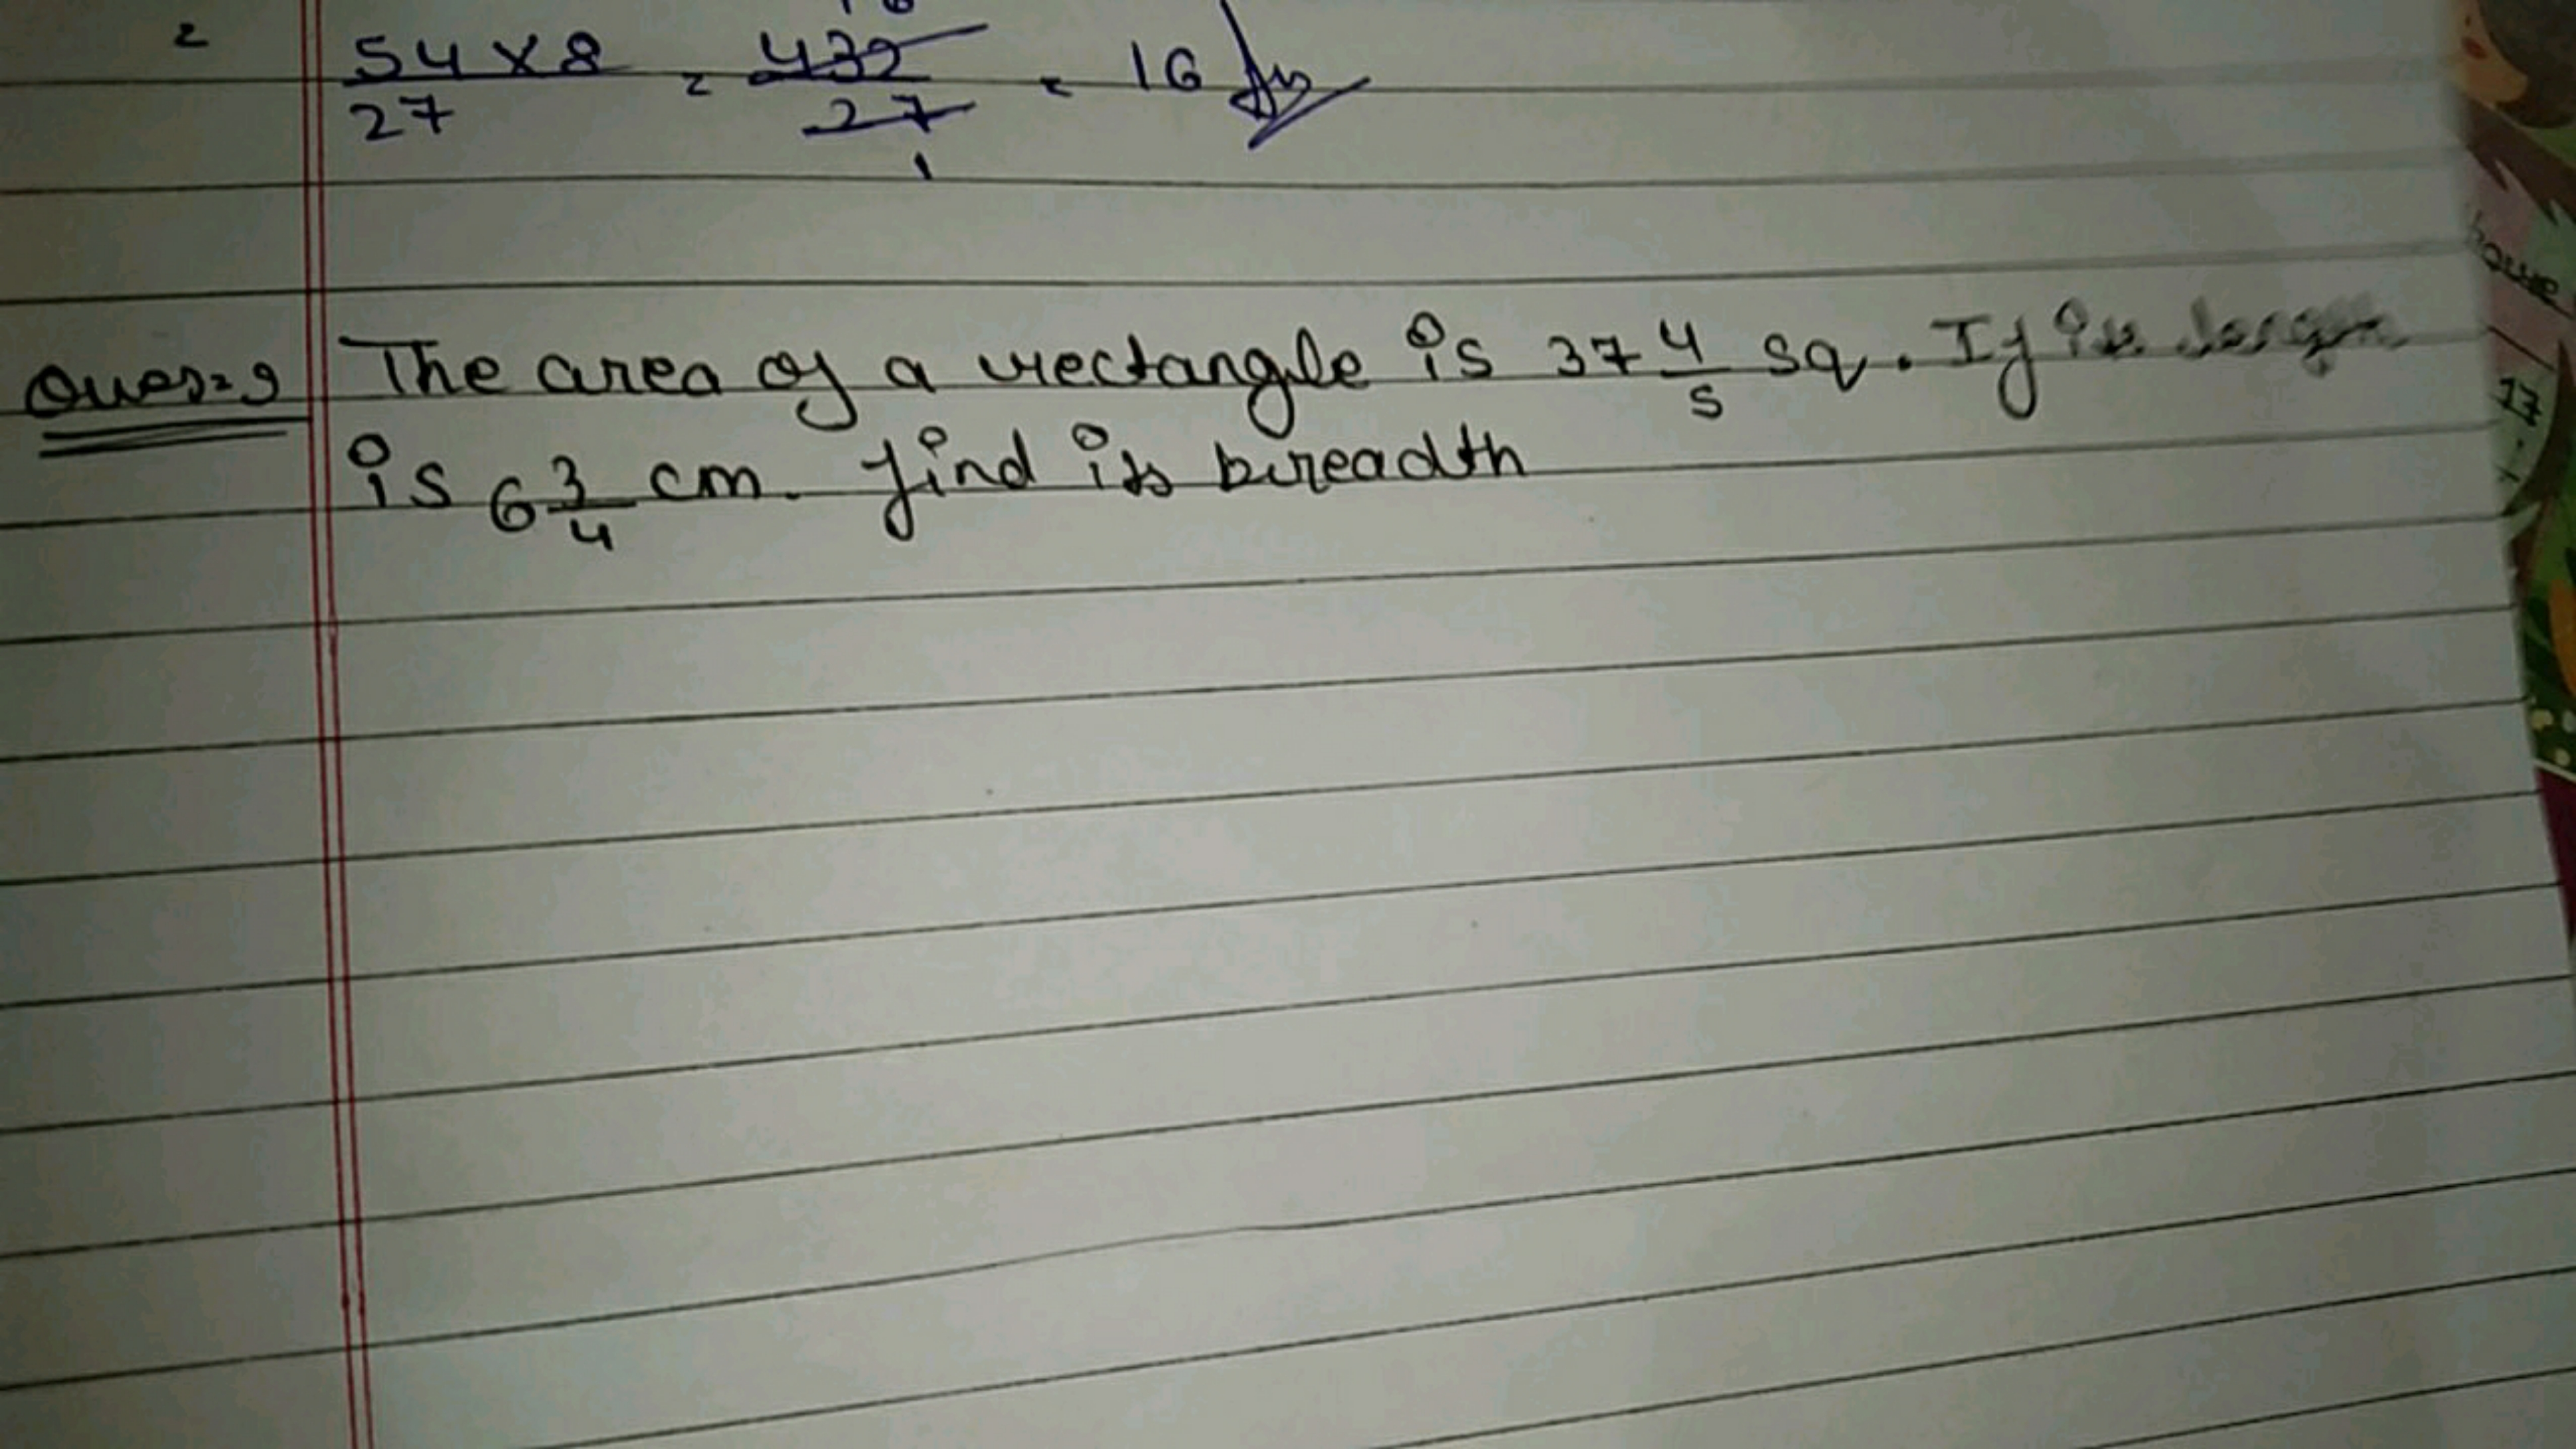 = 54 x 8 / 27 = 432 / 27 = 16 Ans
16
1
Ques=9 The area of a rectangle is 37 4/5 sq. If its length
is 6 3/4 cm. find its breadth
17